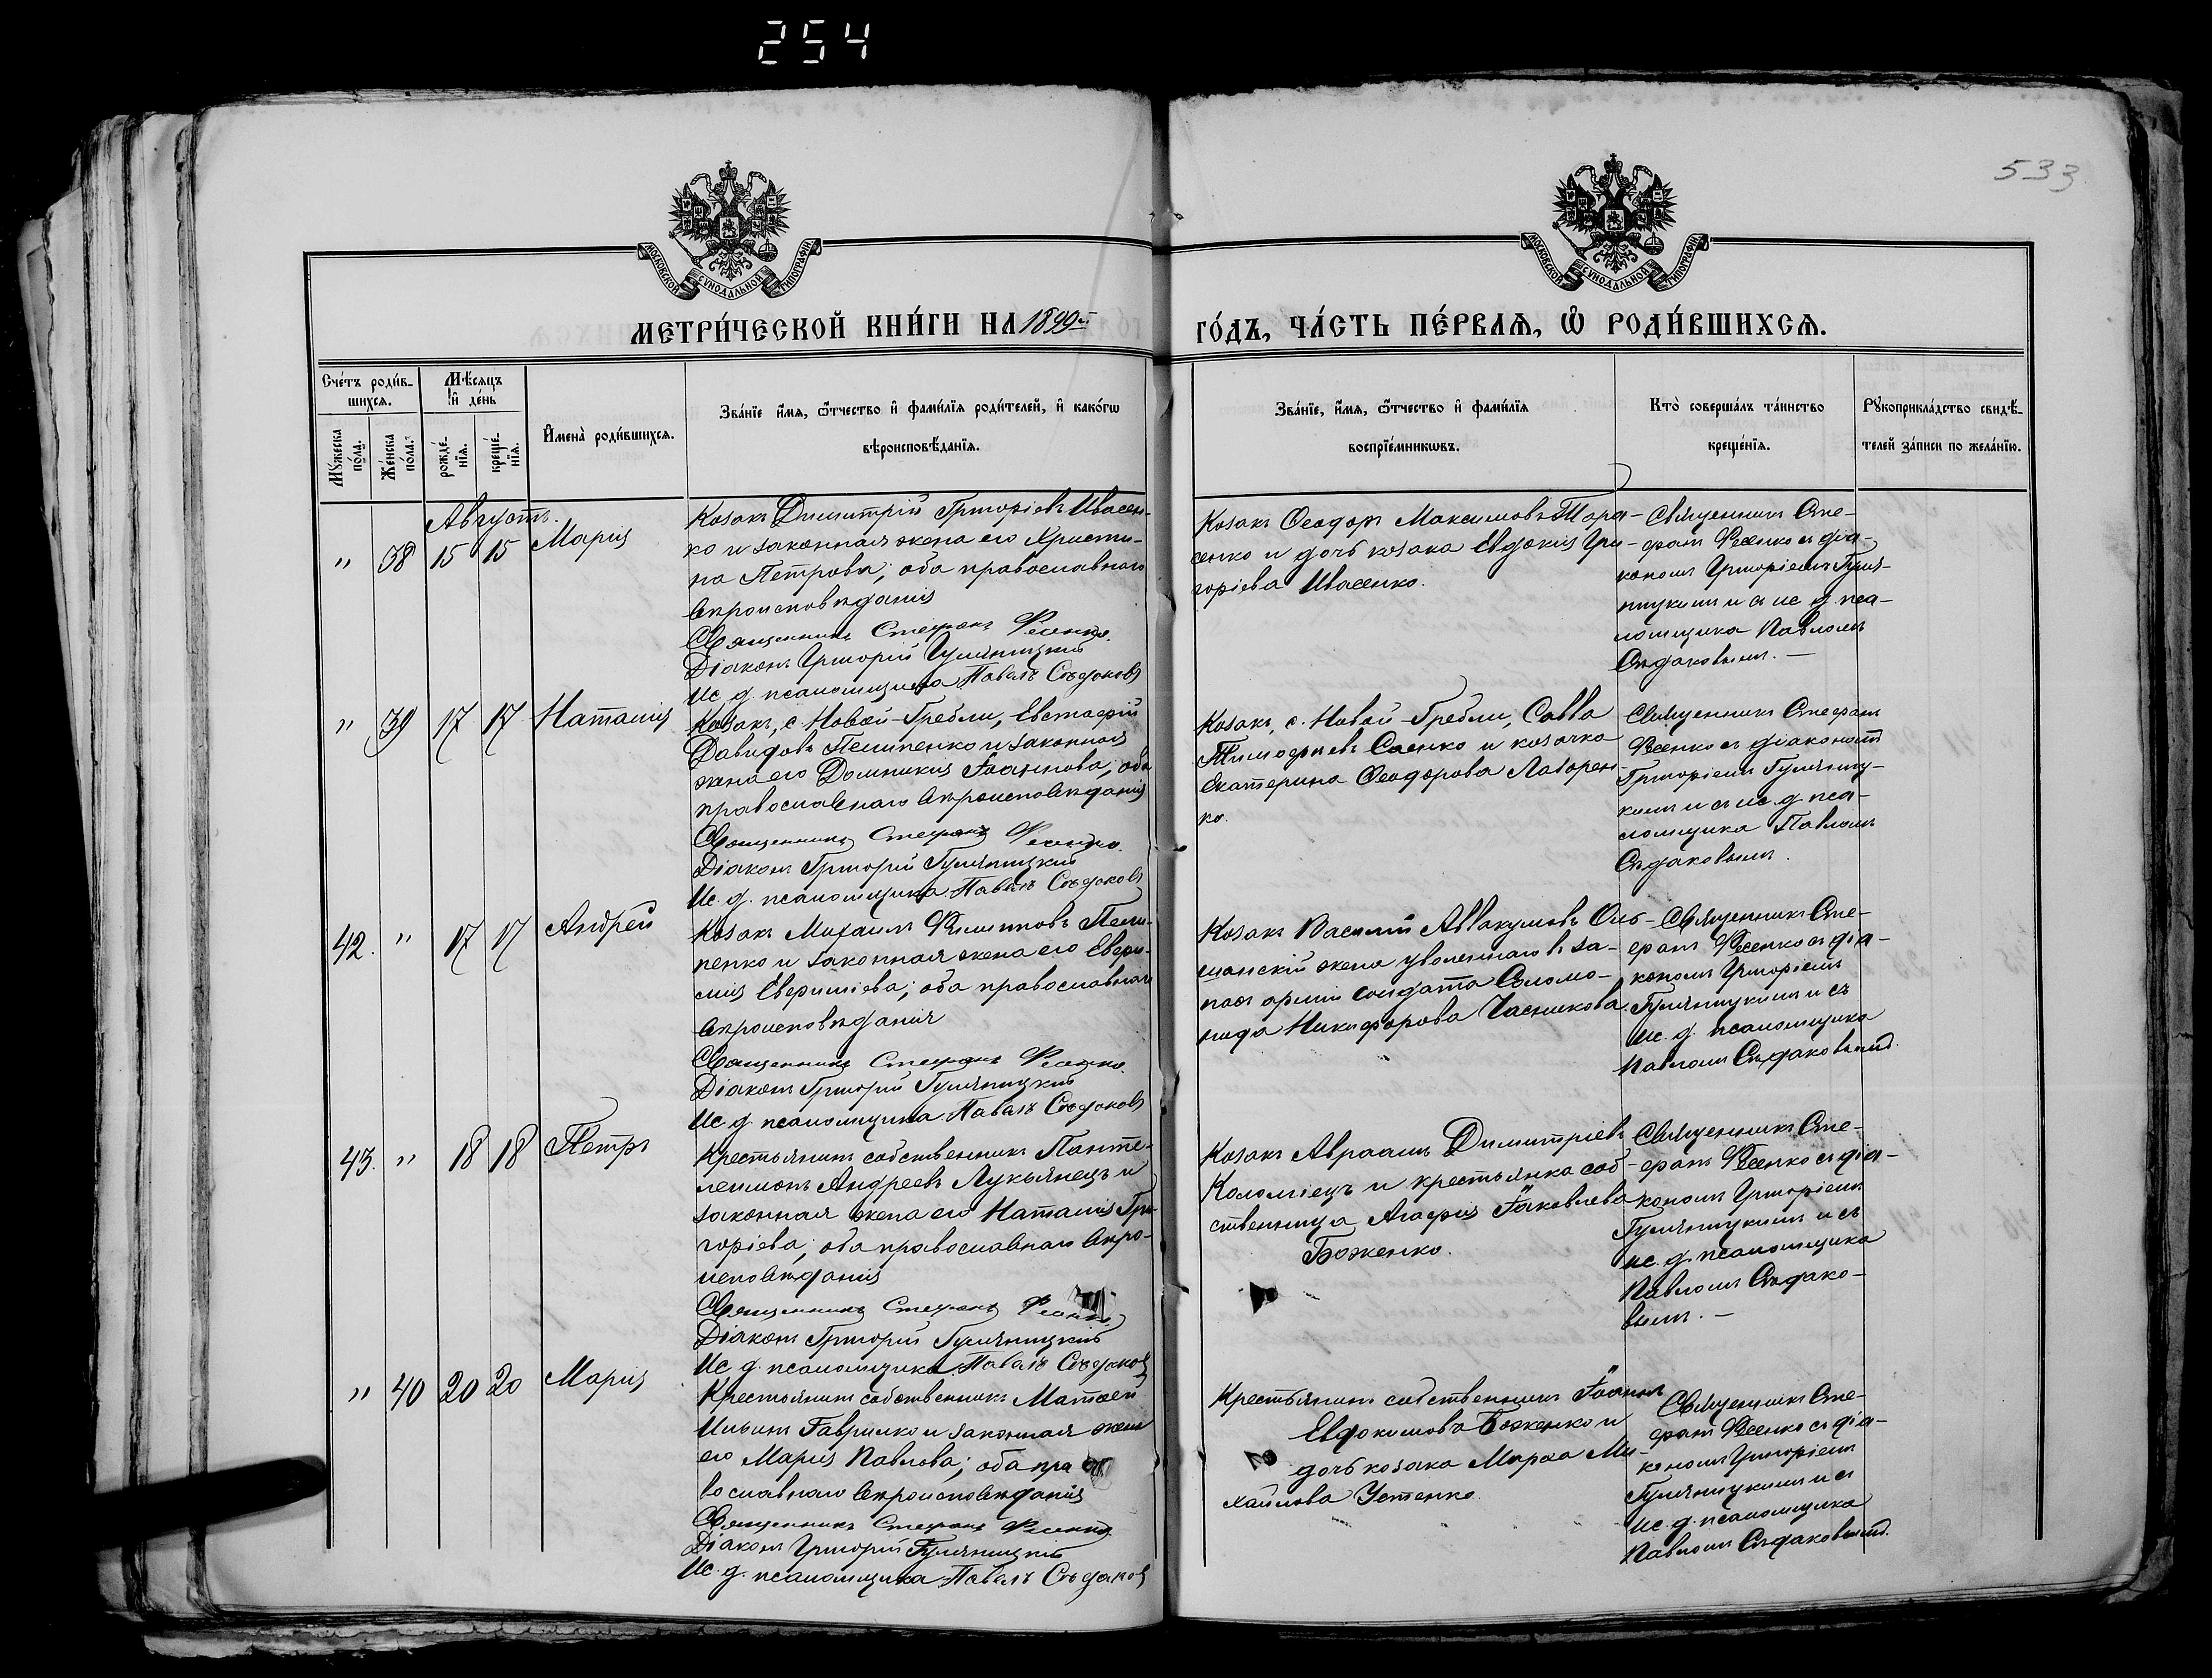 254
533
МОСКОВСКОЙ СѴНОДАЛЬНОЙ ТИПОГРАФІИ
МОСКОВСКОЙ СѴНОДАЛЬНОЙ ТИПОГРАФІИ
МЕТРИ́ЧЕСКОЙ КНИ́ГИ НА 1899й
ГО́ДЪ, ЧА́СТЬ ПЕ́РВАѦ, Ѡ РОДИ́ВШИХСѦ.
Сче́тъ роди́в-
шихсѧ.
Мѣ́сѧцъ
и҆ де́нь
Мꙋ́жеска
по́ла.
Же́нска
по́ла.
рожде́-
нїѧ.
креще́-
нїѧ.
И҆мена̀ роди́вшихсѧ.
Зва́нїе и҆́мѧ, ѻ҆́тчество и҆ фами́лїѧ роди́телей, и҆ како́гѡ
вѣроисповѣ́данїѧ.
Зва́нїе, и҆́мѧ, ѻ҆́тчество и҆ фами́лїѧ
воспрїе́мникѡвъ.
Кто̀ соверша́лъ та́инство
креще́нїѧ.
Рꙋкоприкла́дство свидѣ́-
телей за́писи по жела́нїю.
Августъ.
" 38 15 15 Марія
Козакъ Димитрій Григоріевъ Ивасен-
ко и законная жена его Христи-
на Петрова; оба православнаго
вѣроисповѣданія
Священникъ Стефанъ Фесенко.
Діаконъ Григорій Гуляницкій
Ис. д. псаломщика Павелъ Сѣдаковъ
Козакъ Ѳеодоръ Максимовъ Тара-
сенко и дочь козака Евдокія Гри-
горіева Ивасенко.
Священникъ Сте-
фанъ Фесенко съ діа-
кономъ Григоріемъ Гуля-
ницкимъ и съ ис. д. пса-
ломщика Павломъ
Сѣдаковымъ. —
" 39 17 17 Наталія
Козакъ, с. Новой-Гребли, Евстафій
Давидовъ Пелипенко и законная
жена его Домникія Іоаннова; оба
православнаго вѣроисповѣданія
Священникъ Стефанъ Фесенко.
Діаконъ Григорій Гуляницкій
Ис. д. псаломщика Павелъ Сѣдаковъ
Козакъ, с. Новой-Гребли, Савва
Тимофѣевъ Саенко и козачка
Екатерина Ѳеодорова Лаворен-
ко.
Священникъ Стефанъ
Фесенко съ діакономъ
Григоріемъ Гуляниц-
кимъ и съ ис. д. пса-
ломщика Павломъ
Сѣдаковымъ.
42. " 17 17 Андрей
Козакъ Михаилъ Филипповъ Пели-
пенко и законная жена его Евфи-
мія Евфиміева; оба православнаго
вѣроисповѣданія
Священникъ Стефанъ Фесенко.
Діаконъ Григорій Гуляницкій
Ис. д. псаломщика Павелъ Сѣдаковъ
Козакъ Василій Аввакумовъ Оль-
шанскій жена уволеннаго въ за-
пасъ арміи солдата Соломо-
нида Никифорова Часникова.
Священникъ Сте-
фанъ Фесенко съ діа-
кономъ Григоріемъ
Гуляницкимъ и съ
ис. д. псаломщика
Павломъ Сѣдаковымъ.
43. " 18 18 Петръ
Крестьянинъ собственникъ Панте-
леимонъ Андреевъ Лукьянецъ и
законная жена его Наталія Гри-
горіева; оба православнаго вѣро-
исповѣданія
Священникъ Стефанъ Фесенко
Діаконъ Григорій Гуляницкій
Ис. д. псаломщика Павелъ Сѣдаковъ
Козакъ Авраамъ Димитріевъ
Коломіецъ и крестьянка соб-
ственница Агафія Іаковлева
Боженко.
Священникъ Сте-
фанъ Фесенко съ діа-
кономъ Григоріемъ
Гуляницкимъ и съ
ис. д. псаломщика
Павломъ Сѣдако-
вымъ. —
" 40 20 20 Марія
Крестьянинъ собственникъ Матѳей
Ильинъ Гаврилко и законная жена
его Марія Павлова; оба пра
вославнаго вѣроисповѣданія
Священникъ Стефанъ Фесенко
Діаконъ Григорій Гуляницкій
Ис. д. псаломщика Павелъ Сѣдаковъ
Крестьянинъ собственникъ Іоаннъ
Евдокимовъ Боженко и
дочь козака Марѳа Ми-
хайлова Устенко.
Священникъ Сте-
фанъ Фесенко съ діа-
кономъ Григоріемъ
Гуляницкимъ и съ
ис. д. псаломщика
Павломъ Сѣдаковымъ.